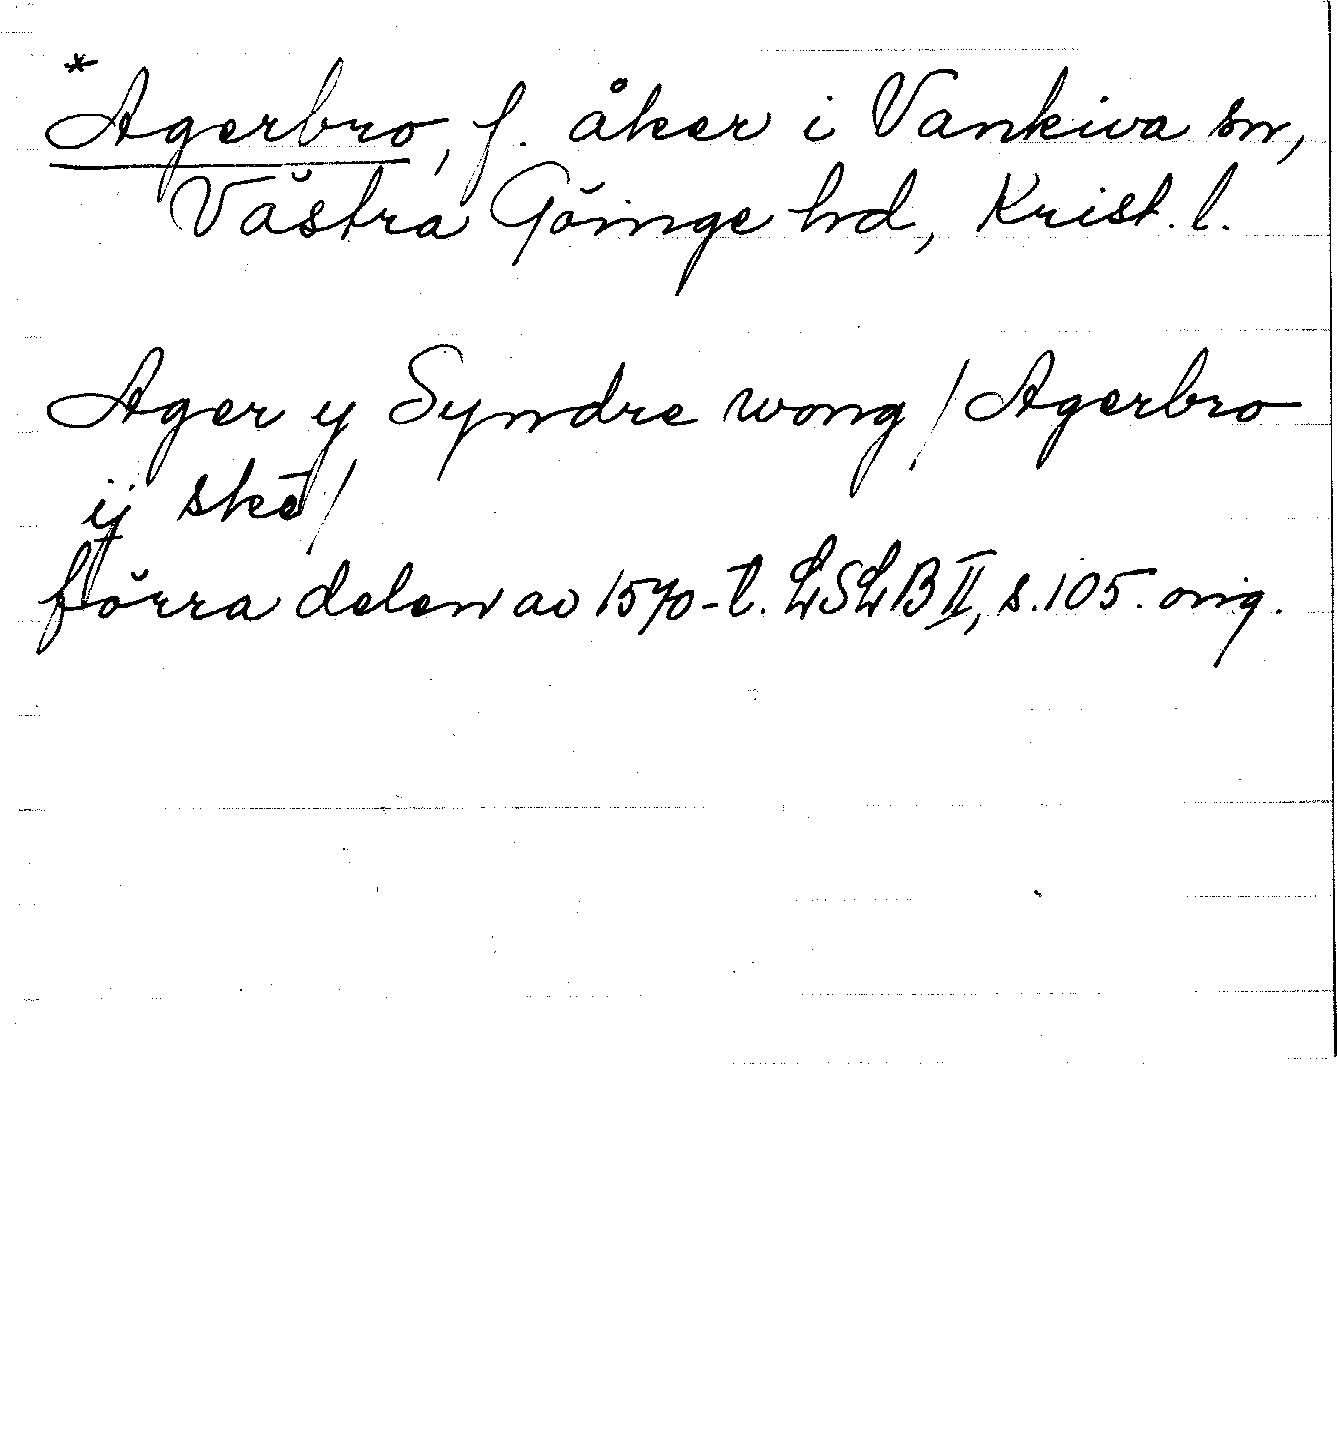 *Agerbro, f. åker i Vankiva sn,
Västra Göinge hd, Krist. l.
Ager y Syndre wong / Agerbro
ij skē /
förra delen av 1570-t. LSLB II, s. 105. orig.